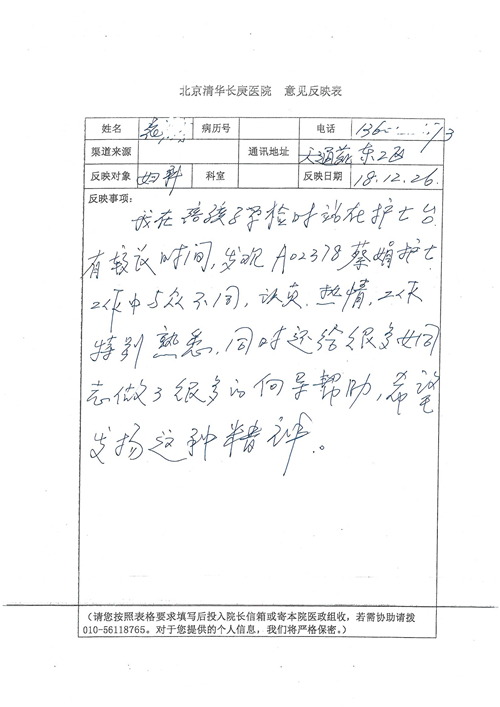 北京清华长庚医院 意见反映表
姓名 袁 病历号 电话 136 73
渠道来源 通讯地址 天通苑东二区
反映对象 妇科 科室 反映日期 18.12.26.
反映事项:
我在陪孩子孕检时站在护士台
有较长时间,发现A02378蔡娟护士
工作中与众不同,认真.热情,工作
特别熟悉.同时还给很多女同
志做了很多的向导帮助,希望
发扬这种精神。
(请您按照表格要求填写后投入院长信箱或寄本院医政组收,若需协助请拨
010-56118765。对于您提供的个人信息,我们将严格保密。)